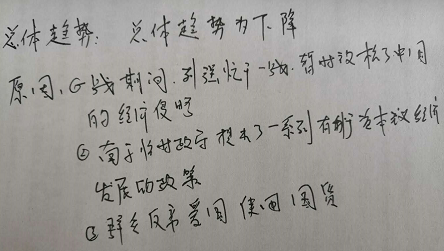 总体趋势: 总体趋势为下降
原因、①战期间.列强忙于一战.暂时放松了中国
的经济侵略
②南京临时政府提出了一系列有利于资本主义经济
发展的政策
③群众反帝爱国使用国货